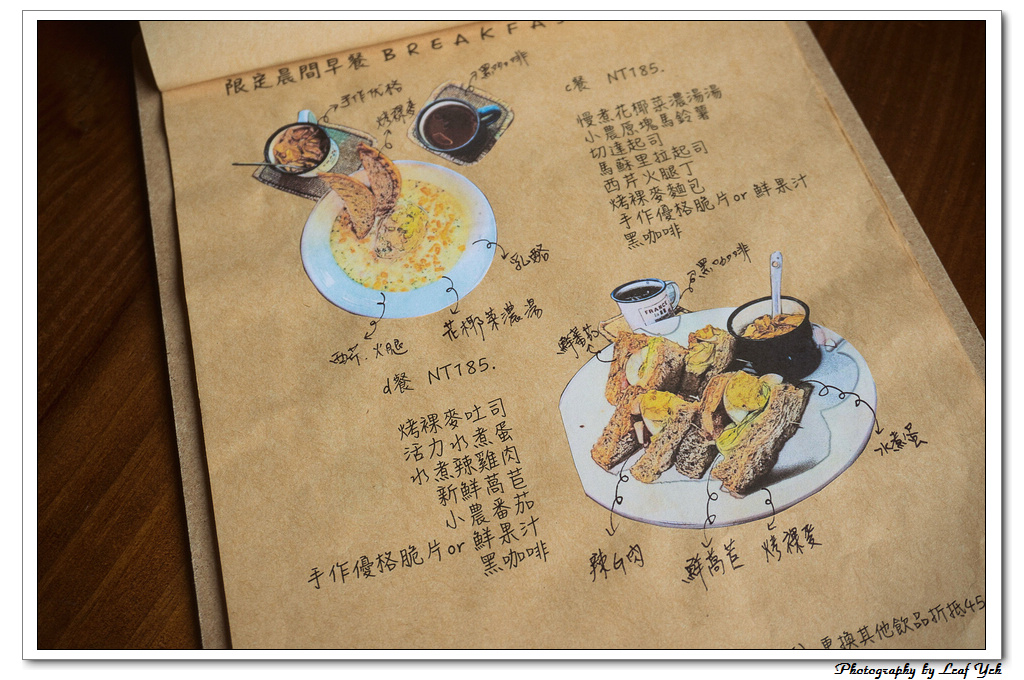 限定晨間早餐 BREAKFA
手作优格
烤裸麥
黑咖啡
乳酪
花椰菜濃湯
西芹.火腿
c餐 NT185.
慢煮花椰菜濃湯湯
小農原塊馬鈴薯
切達起司
馬蘇里拉起司
西芹火腿丁
烤裸麥麵包
手作優格脆片or 鮮果汁
黑咖啡
d餐 NT185.
烤裸麥吐司
活力水煮蛋
水煮辣雞肉
新鮮萵苣
小農番茄
手作優格脆片or 鮮果汁
黑咖啡
黑咖啡
鮮蕃茄
水煮蛋
鮮萵苣
烤裸麥
更換其他飲品折抵45
Photography by Leaf Yeh